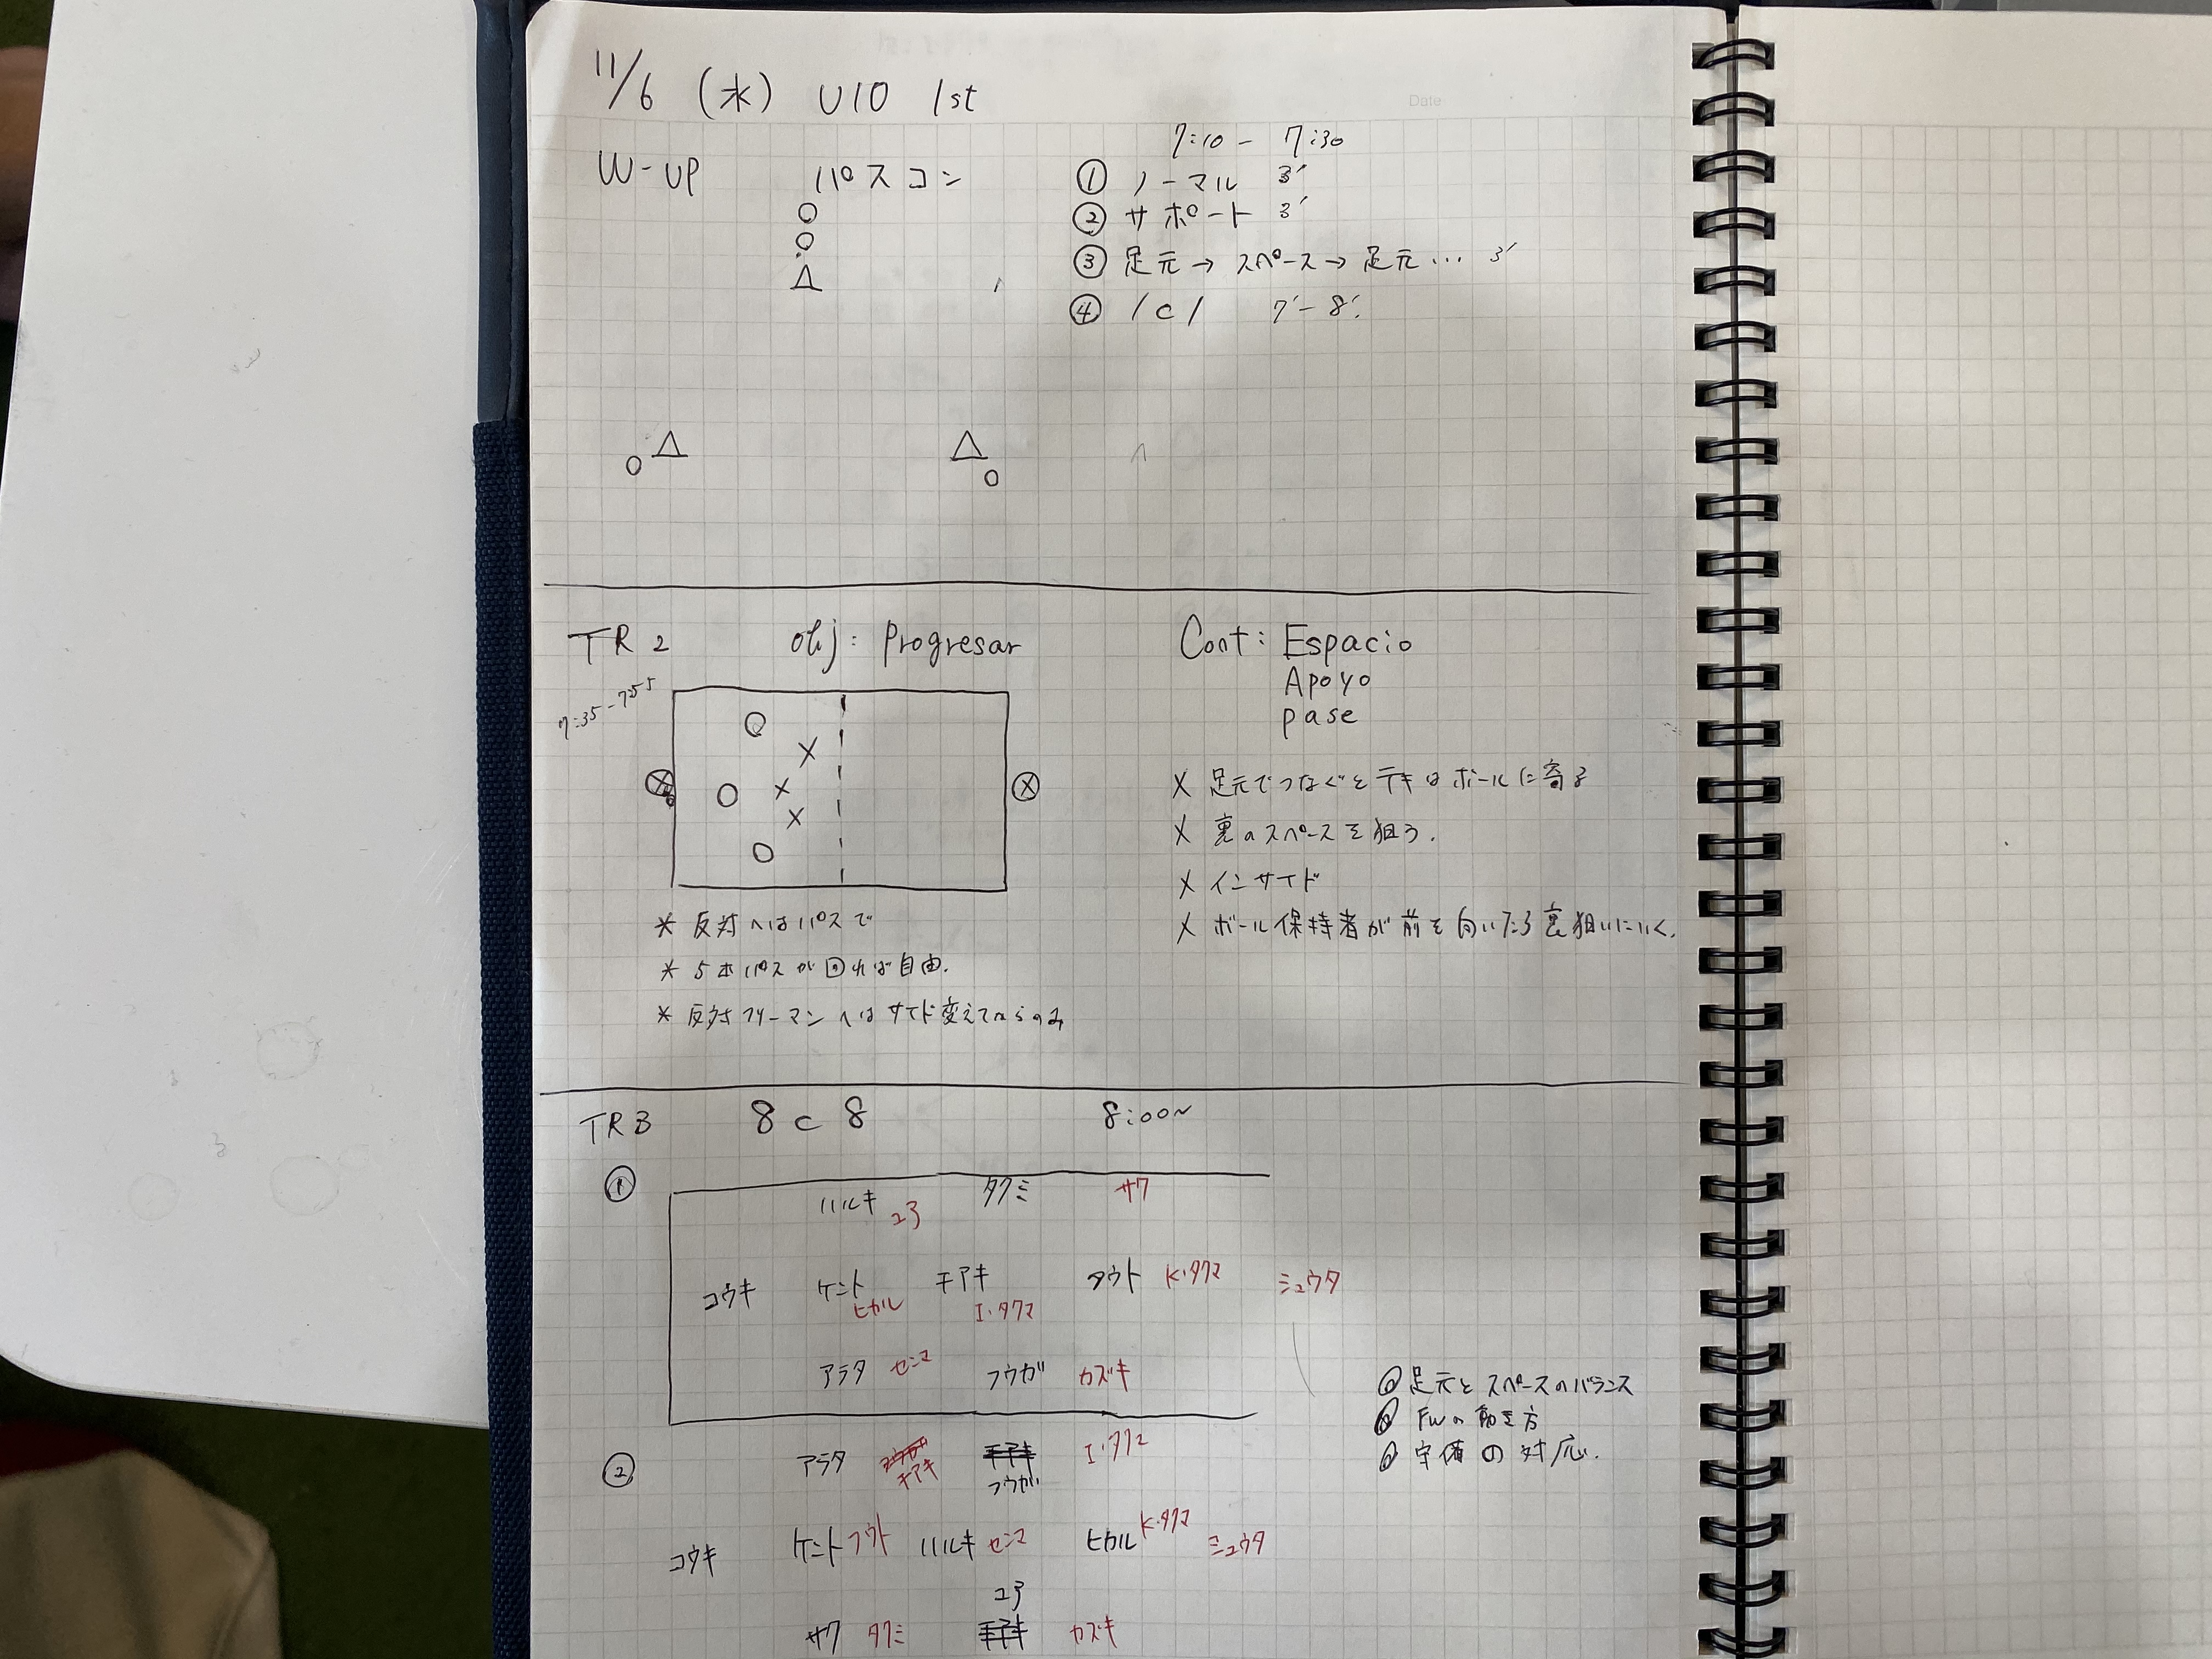 11/6 (水) U10 1st
Date
W-UP パスコン
7:10 - 7:30
① ノーマル 3'
② サポート 3'
③ 足元→スペース→足元… 3'
④ 1c1 7'-8'
TR 2 obj: Progresar
7:35-7:55
Cont: Espacio
Apoyo
pase
X 足元でつなぐとテキはボールに寄る
X 裏のスペースを狙う.
X インサイド
X ボール保持者が前を向いたら裏狙いにいく.
* 反対へはパスで
* 5本パスが回れば自由.
* 反対フリーマンへはサイド変えてからのみ
TR3 8c8 8:00~
①
ハルキ ユウ タクミ サク
コウキ ケント ヒカル チアキ I・タクマ K・タクマ ミュウタ
アラタ センマ フウガ カズキ
足元とスペースのバランス
FWの動き方
守備の対応.
②
アラタ チアキ フウガ I・タクマ
コウキ ケント フウト ハルキ センマ ヒカル K・タクマ ミュウタ
サク タクミ カズキ